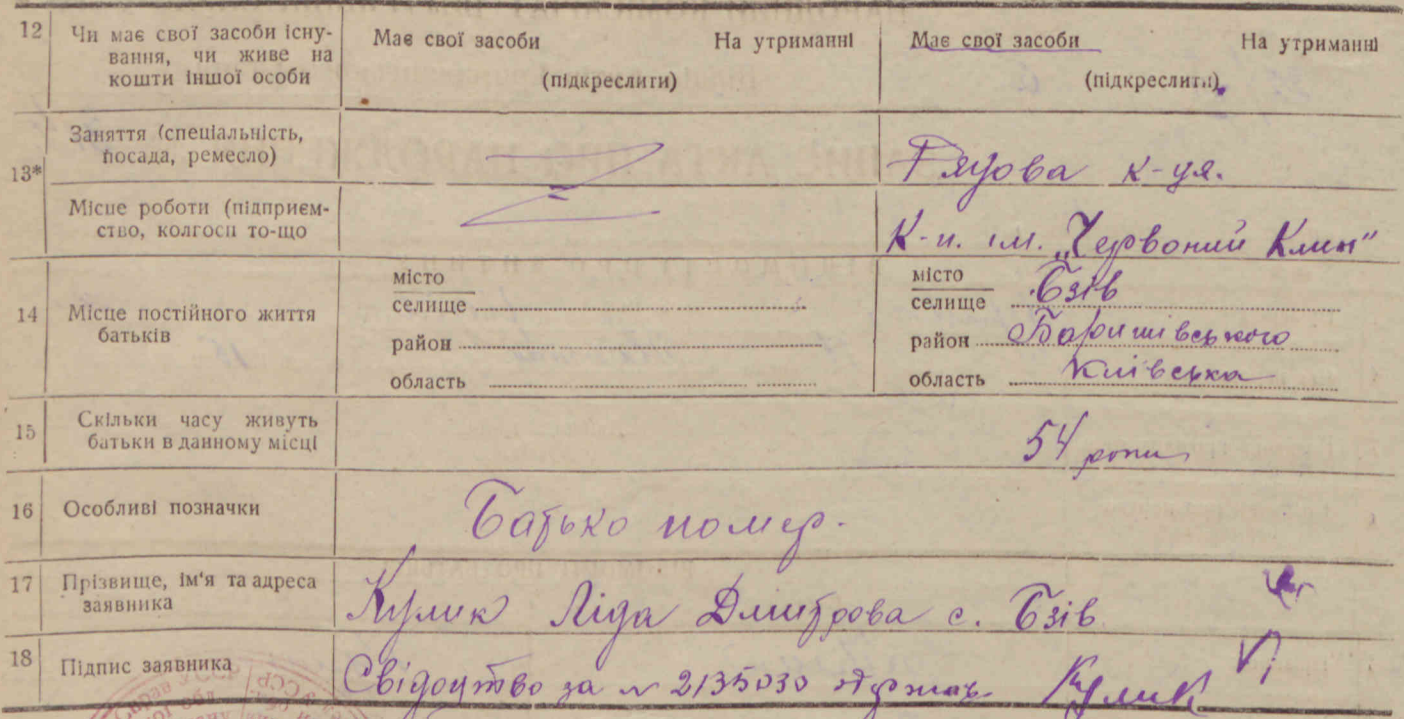 12 Чи має свої засоби існування, чи живе на кошти іншої особи
Має свої засоби На утриманні
(підкреслити)
Має свої засоби На утриманні
(підкреслити)
13* Заняття (спеціальність, посада, ремесло)
Рядова к-ця.
Місце роботи (підприємство, колгосп то-що
К-п. ім. „Червоний Клин"
14 Місце постійного життя батьків
місто
селище
район
область
місто
селище Бзів
район Баришівського
область Київська
15 Скільки часу живуть батьки в данному місці
54 роки
16 Особливі позначки
Батько помер.
17 Прізвище, ім'я та адреса заявника
Кулик Ліда Дмитрова с. Бзів
18 Підпис заявника
Свідоцтво за № 2135030 Кулик